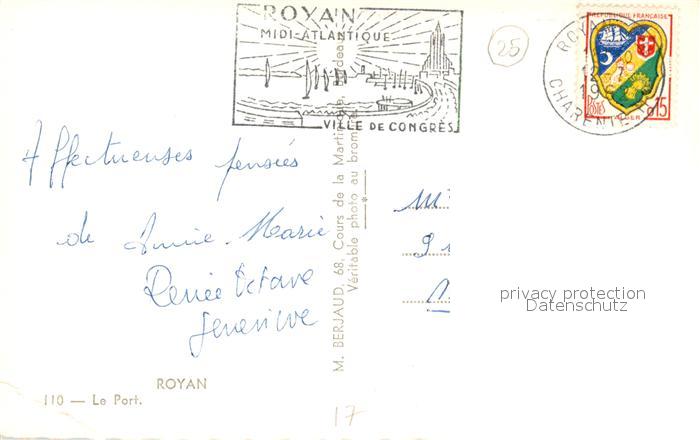 ROYAN
MIDI-ATLANTIQUE
VILLE DE CONGRÈS
25
ROYAN
CHARENTE
REPUBLIQUE FRANÇAISE
POSTES
ALGER
0,15
Affectueuses pensées
de Annie-Marie
Renée Octave
Geneviève
M. BERJAUD, 68, Cours de la Martinique,
Véritable photo au bromure
M
privacy protection
Datenschutz
ROYAN
110 — Le Port.
17